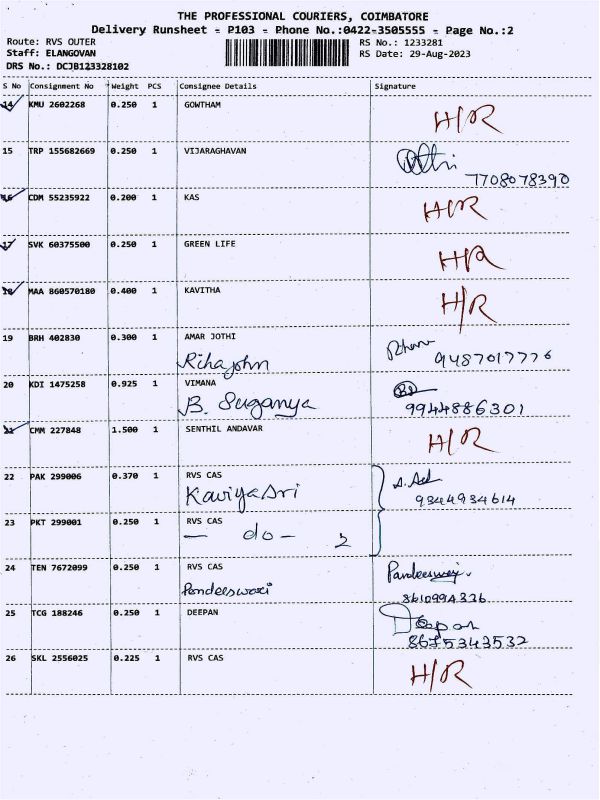 THE PROFESSIONAL COURIERS, COIMBATORE
Delivery Runsheet - P103 - Phone No.:0422-3505555 - Page No.:2
Route: RVS OUTER RS No.: 1233281
Staff: ELANGOVAN RS Date: 29-Aug-2023
DRS No.: DCJB123328102
S No Consignment No Weight PCS Consignee Details Signature
14 KMU 2602268 0.250 1 GOWTHAM
H/R
15 TRP 155682669 0.250 1 VIJARAGHAVAN
7708078390
16 CDM 55235922 0.200 1 KAS
H/R
17 SVK 60375500 0.250 1 GREEN LIFE
H/R
18 MAA 860570180 0.400 1 KAVITHA
H/R
19 BRH 402830 0.300 1 AMAR JOTHI
Rihajohn 9487017776
20 KDI 1475258 0.925 1 VIMANA
B. Suganya 9944886301
21 CMM 227848 1.500 1 SENTHIL ANDAVAR
H/R
22 PAK 299006 0.370 1 RVS CAS
Kaviyasri 9344934614
23 PKT 299001 0.250 1 RVS CAS
- do - 2
24 TEN 7672099 0.250 1 RVS CAS
Pandeeswari Pandeeswari.
25 TCG 188246 0.250 1 DEEPAN
Deepan
8675343532
26 SKL 2556025 0.225 1 RVS CAS
H/R